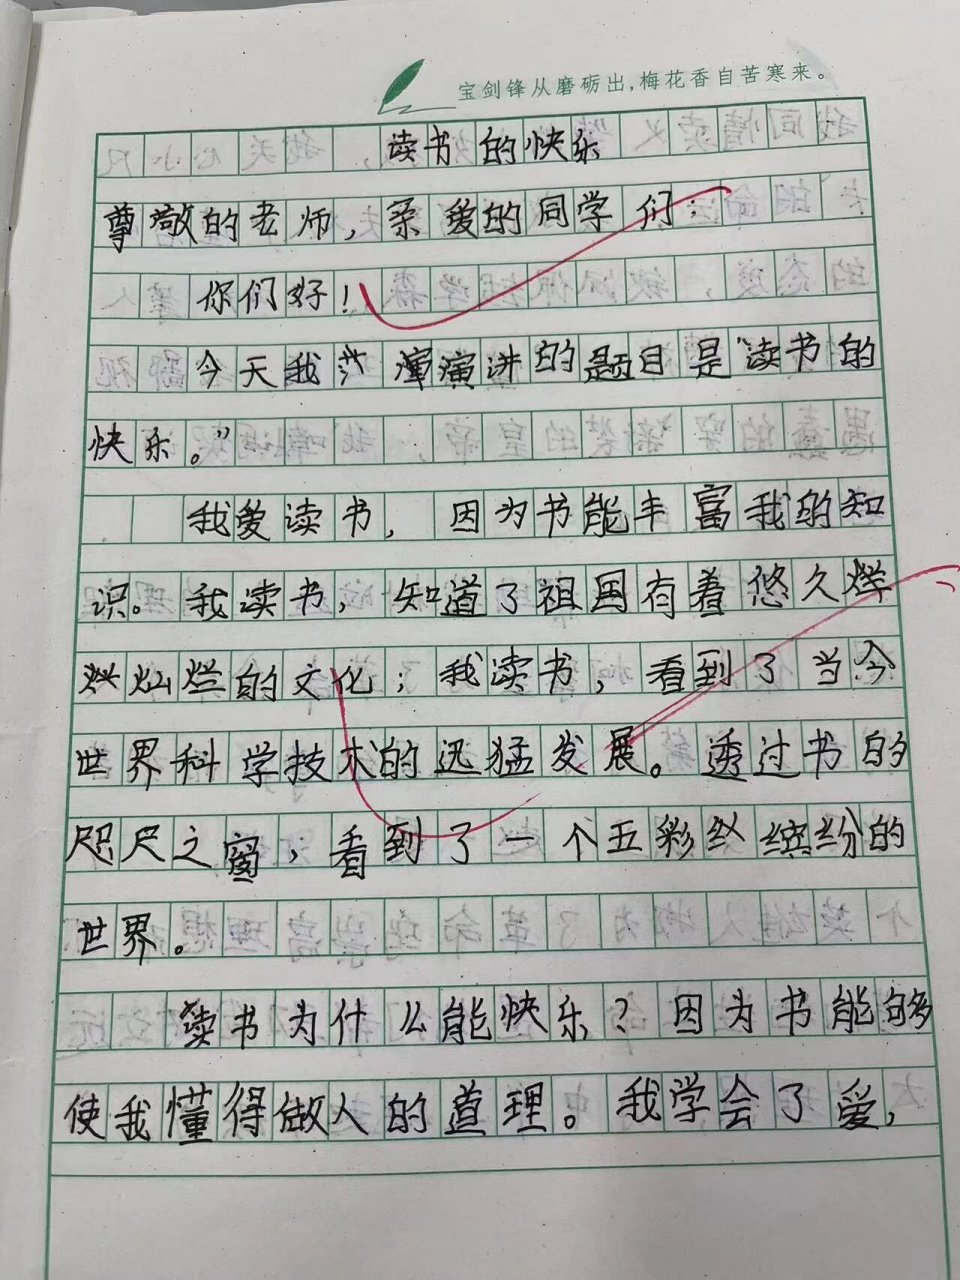 宝剑锋从磨砺出，梅花香自苦寒来。
读书的快乐
尊敬的老师，亲爱的同学们：
你们好！
今天我演讲的题目是“读书的
快乐。”
我爱读书，因为书能丰富我的知
识。我读书，知道了祖国有着悠久
灿烂的文化；我读书，看到了当今
世界科学技术的迅猛发展。透过书的
咫尺之窗，看到了一个五彩缤纷的
世界。
读书为什么能快乐？因为书能够
使我懂得做人的道理。我学会了爱，